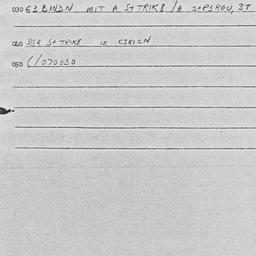 030 63 BINDN MIT A S+TRIK8 /A S+P3RGU, 3T
040 D3R S+TRIK8 IZ C3RISN
050 (/070030